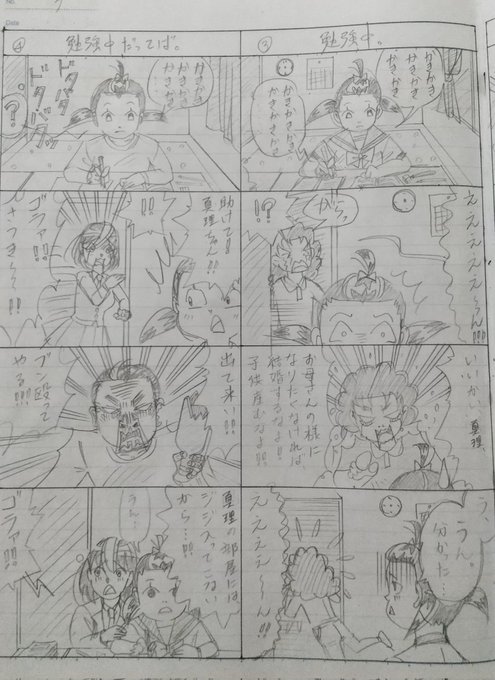 ③ 勉強中。
かきかき
かきかき
かきかきかき
かきかきかき
ええええ〜ん!!!
がら。
!?
いいかい真理、
お母さんの様に
なりたくなければ
結婚するなよ!!
子供産むなよ!!
う、
うん。
分かった…
ええええ〜ん!!
④ 勉強中だってば。
かきかき
かきかき
かきかき
ドタバタ
ドタバタ
?
助けて!
真理ちゃん!!
!!
ゴラァ!!
さつき〜〜!!
出て来い!!
ブン殴って
やる!!!
真理の部屋には
ジジイってこない
から…!!
うん…
ゴラァ!!
No.
Date